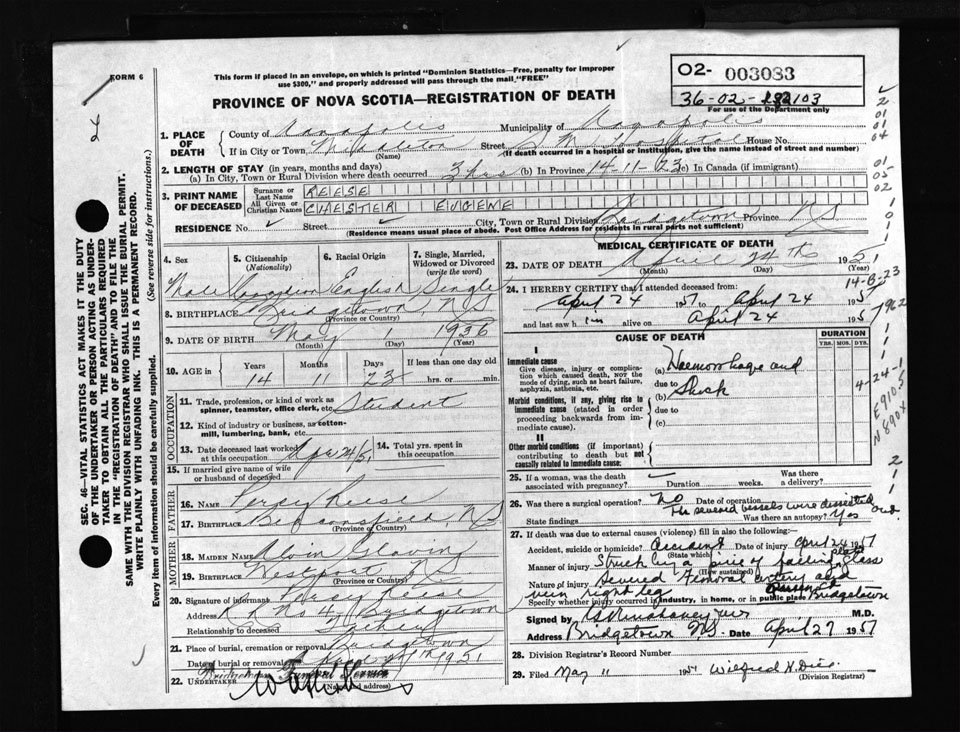 FORM 6
24
This form if placed in an envelope, on which is printed "Dominion Statistics—Free, penalty for improper
use $300," and properly addressed will pass through the mail "FREE"
PROVINCE OF NOVA SCOTIA—REGISTRATION OF DEATH
02- 003083
36-02- 103
For use of the Department only
1. PLACE OF DEATH
County of Annapolis Municipality of Annapolis
If in City or Town, Middleton Street S M Hospital House No.
(Name) (If death occurred in a hospital or institution, give the name instead of street and number)
2. LENGTH OF STAY (in years, months and days)
(a) In City, Town or Rural Division where death occurred 3 hrs (b) In Province 14-11-23 (c) In Canada (if immigrant)
3. PRINT NAME OF DECEASED
Surname or Last Name REESE
All Given or Christian Names CHESTER EUGENE
RESIDENCE No. Street City, Town or Rural Division Bridgetown Province NS
(Residence means usual place of abode. Post Office Address for residents in rural parts not sufficient)
4. Sex
5. Citizenship (Nationality)
6. Racial Origin
7. Single, Married, Widowed or Divorced (write the word)
Male Canadian English Single
8. BIRTHPLACE Bridgetown, NS
(Province or Country)
9. DATE OF BIRTH May 1936
(Month) (Day) (Year)
10. AGE in Years Months Days If less than one day old
14 11 23 hrs. or min.
OCCUPATION
11. Trade, profession, or kind of work as spinner, teamster, office clerk, etc. Student
12. Kind of industry or business, as cotton-mill, lumbering, bank, etc.
13. Date deceased last worked at this occupation Apr 24/51
14. Total yrs. spent in this occupation
15. If married give name of wife or husband of deceased
FATHER
16. NAME Percy Reese
17. BIRTHPLACE Beaconsfield, NS
(Province or Country)
MOTHER
18. MAIDEN NAME
19. BIRTHPLACE Westport NS
(Province or Country)
20. Signature of informant Percy Reese
Address R R No 4, Bridgetown
Relationship to deceased Father
21. Place of burial, cremation, or removal Bridgetown
Date of burial or removal 1951
22. UNDERTAKER Bridgetown Funeral
(Name and address)
MEDICAL CERTIFICATE OF DEATH
23. DATE OF DEATH April 24th 1951
(Month) (Day) (Year)
14-8-23
24. I HEREBY CERTIFY that I attended deceased from:
April 24 1951 to April 24 1951
and last saw him alive on April 24 1951
CAUSE OF DEATH
DURATION
YRS. MOS. DYS.
I
Immediate cause
Give disease, injury or complication which caused death, not the mode of dying, such as heart failure, asphyxia, asthenia, etc.
(a) Haemorrhage and
due to
(b) Shock
Morbid conditions, if any, giving rise to immediate cause (stated in order proceeding backwards from immediate cause).
due to
(c)
II
Other morbid conditions (if important) contributing to death but not causally related to immediate cause:
4-24-1
E910.5
N890X
25. If a woman, was the death associated with pregnancy? Weeks duration Was there a delivery?
26. Was there a surgical operation? No Date of operation
State findings The severed vessels were dissected out
Was there an autopsy? Yes
27. If death was due to external causes (violence) fill in also the following:
Accident, suicide or homicide? Accident Date of injury April 24 1951
(State which)
Manner of injury Struck by a piece of falling plate glass
(How sustained)
Nature of injury Severed femoral artery and
vein right leg
Specify whether injury occurred in industry, in home, or in public place Bridgetown
Signed by M.D.
Address Bridgetown NS Date April 27 1951
28. Division Registrar's Record Number
29. Filed May 11 1951 Wilfred H.
(Division Registrar)
SEC. 46—VITAL STATISTICS ACT MAKES IT THE DUTY
OF THE UNDERTAKER OR PERSON ACTING AS UNDER-
TAKER TO OBTAIN ALL THE PARTICULARS REQUIRED
IN THE "REGISTRATION OF DEATH" AND TO FILE THE
SAME WITH THE DIVISION REGISTRAR WHO SHALL ISSUE THE BURIAL PERMIT.
WRITE PLAINLY WITH UNFADING INK. THIS IS A PERMANENT RECORD.
(See reverse side for instructions.)
Every item of information should be carefully supplied.